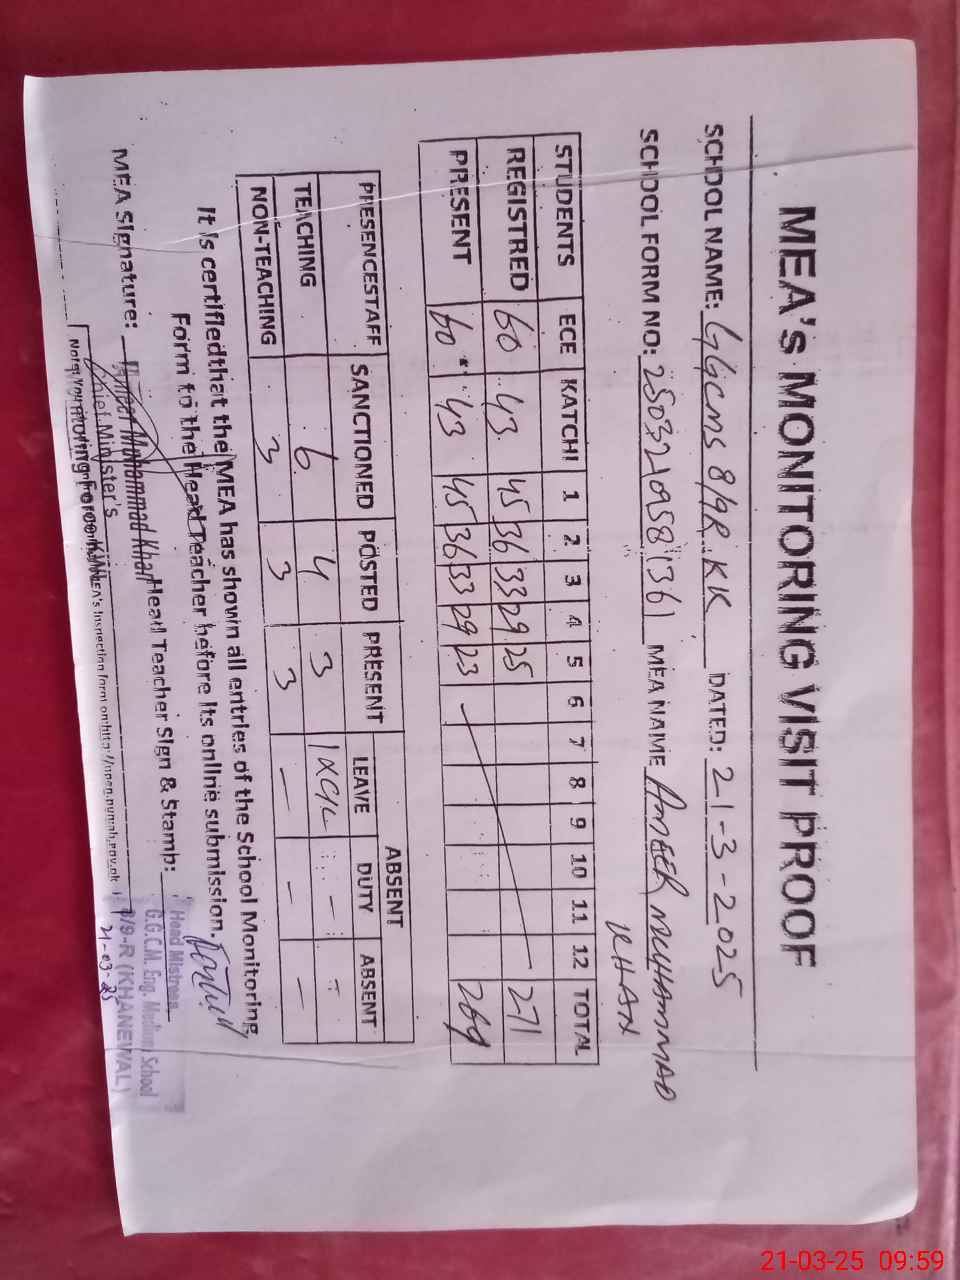 MEA's MONITORING VISIT PROOF
SCHOOL NAME: GGCMS 8/9R KK DATED: 21-3-2025
SCHOOL FORM NO: 25032109581361 MEA NAME AMEER MUHAMMAD KHAN
STUDENTS ECE KATCHI 1 2 3 4 5 6 7 8 9 10 11 12 TOTAL
REGISTRED 60 43 45 36 33 29 25 271
PRESENT 60 43 45 36 33 29 23 269
PRESENCESTAFF SANCTIONED POSTED PRESENT ABSENT
LEAVE DUTY ABSENT
TEACHING 6 4 3 1XC/L - -
NON-TEACHING 3 3 3 - - -
It is certifiedthat the MEA has shown all entries of the School Monitoring
Form to the Head Teacher before its online submission.
MEA Signature: Ameer Muhammad Khan Head Teacher Sign & Stamb:
Chief Minister's
Monitoring Force KWL
Head Mistress
G.G.C.M. Eng. Medium School
8/9-R (KHANEWAL)
21-03-25
21-03-25 09:59